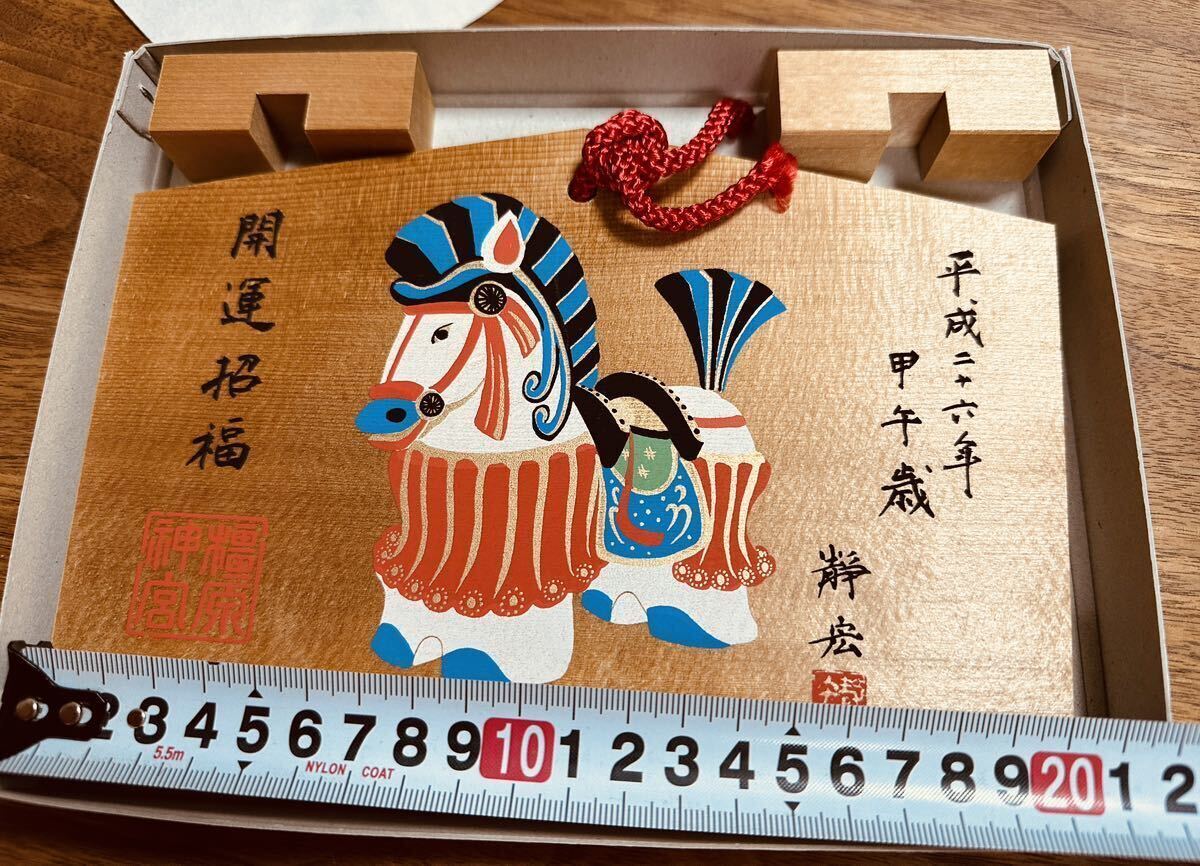 平成二十六年
甲午歳
靜宏
開運招福
橿原
神宮
2 3 4 5 6 7 8 9 10 1 2 3 4 5 6 7 8 9 20 1 2
5.5m
NYLON COAT